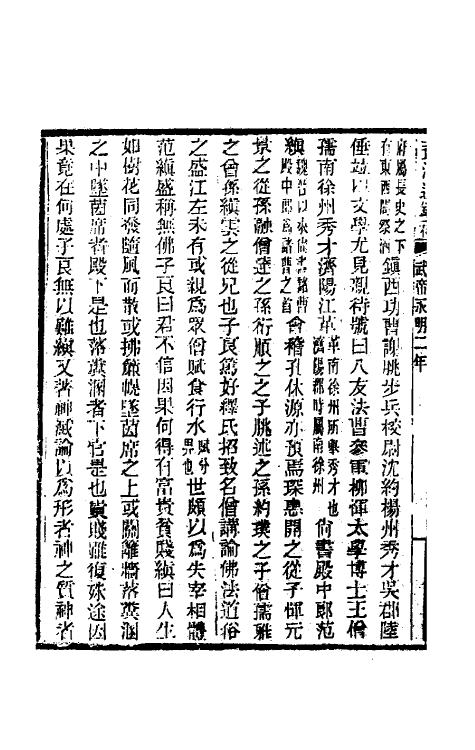 武帝永明二年
府屬長史之下有東西閤祭酒鎮西功曹謝朓步兵校尉沈約揚州秀才吳郡陸
倕竝以文學尤見親待號曰八友法曹參軍柳惲太學博士王僧
孺南徐州秀才濟陽江革革南徐州所舉秀才也濟陽郡時屬南徐州尚書殿中郎范
縝魏晉以來尚書諸曹殿中郎為諸曹之首會稽孔休源亦預焉琛惠開之從子惲元
景之從孫融僧達之孫衍順之之子朓述之孫約璞之子僧孺雅
之曾孫縝雲之從兄也子良篤好釋氏招致名僧講論佛法道俗
之盛江左未有或親爲眾僧賦食行水賦分畀也世頗以爲失宰相體
范縝盛稱無佛子良曰君不信因果何得有富貴貧賤縝曰人生
如樹花同發隨風而散或拂簾幌墜茵席之上或關籬牆落糞溷
之中墜茵席者殿下是也落糞溷者下官是也貴賤雖復殊途因
果竟在何處子良無以難縝又著神滅論以爲形者神之質神者